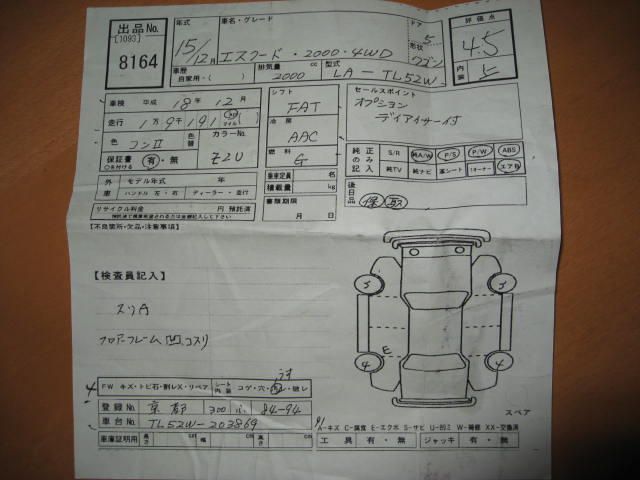 出品No. 年式 車名・グレード ドア 5 評価点
[1093] 15/12月 エスクード・2000・4WD 形状 ワゴン 4.5
8164 車歴 排気量 cc 型式 内装
自家用・( ) 2000 LA-TL52W
車検 平成 18年 12月 シフト FAT セールスポイント
走行 1万9千191 オプション
色 コンⅡ カラーNo. Z2U 冷房 AAC
保証書 有・無 燃料 G 純正のみ記入 S/R A/W P/S P/W ABS
○を付ける 純TV 純ナビ 革シート 1オーナー エアB
外車 モデル年式 年 乗車定員 名 後日品 保 取
ハンドル 左・右 ディーラー・並行 積載量 kg
リサイクル料金 円 預託済 書類期限 月 日
【不良箇所・欠品・注意事項】
【検査員記入】
スリA
フロアーフレーム凹、コスリ
3 3
E
4 4
FW キズ・トビ石・割レX・リペア シート内装 コゲ・穴・汚レ・破レ
スペア
登録No. 京都 300 84-94
車台No. TL52W-203869
A-キズ C-腐食 E-エクボ S-サビ U-凹ミ W-補修 XX-交換済
車庫証明用 長さ cm 幅 cm 高さ cm 工具 有・無 ジャッキ 有・無